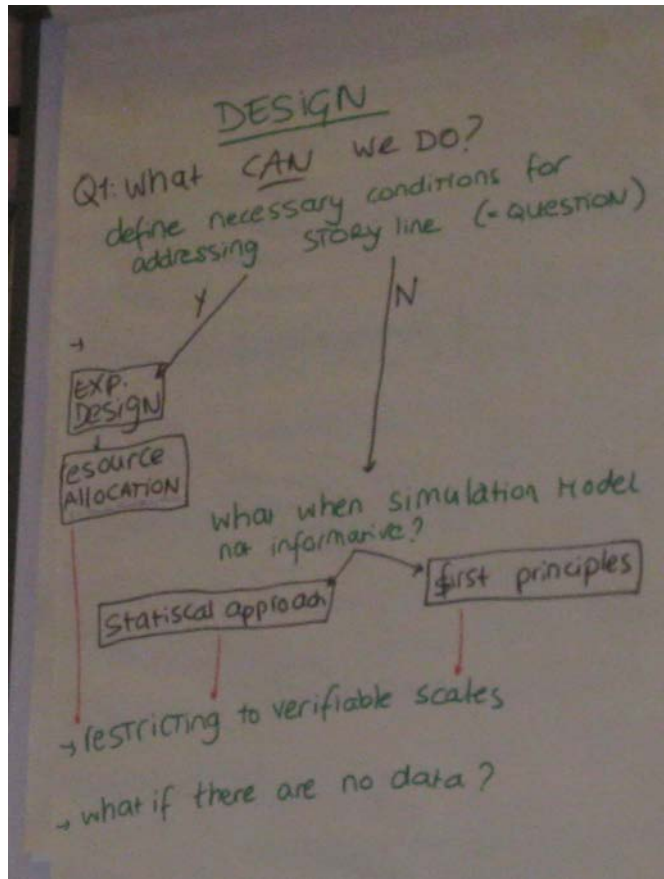 DESIGN
Q1: What CAN we DO?
define necessary conditions for
addressing STORY line (= QUESTION)
Y
N
→
EXP.
DESIGN
esource
ALLOCATION
what when simulation Model
not informative?
Statiscal approach
first principles
→ restricting to verifiable scales
→ what if there are no data?